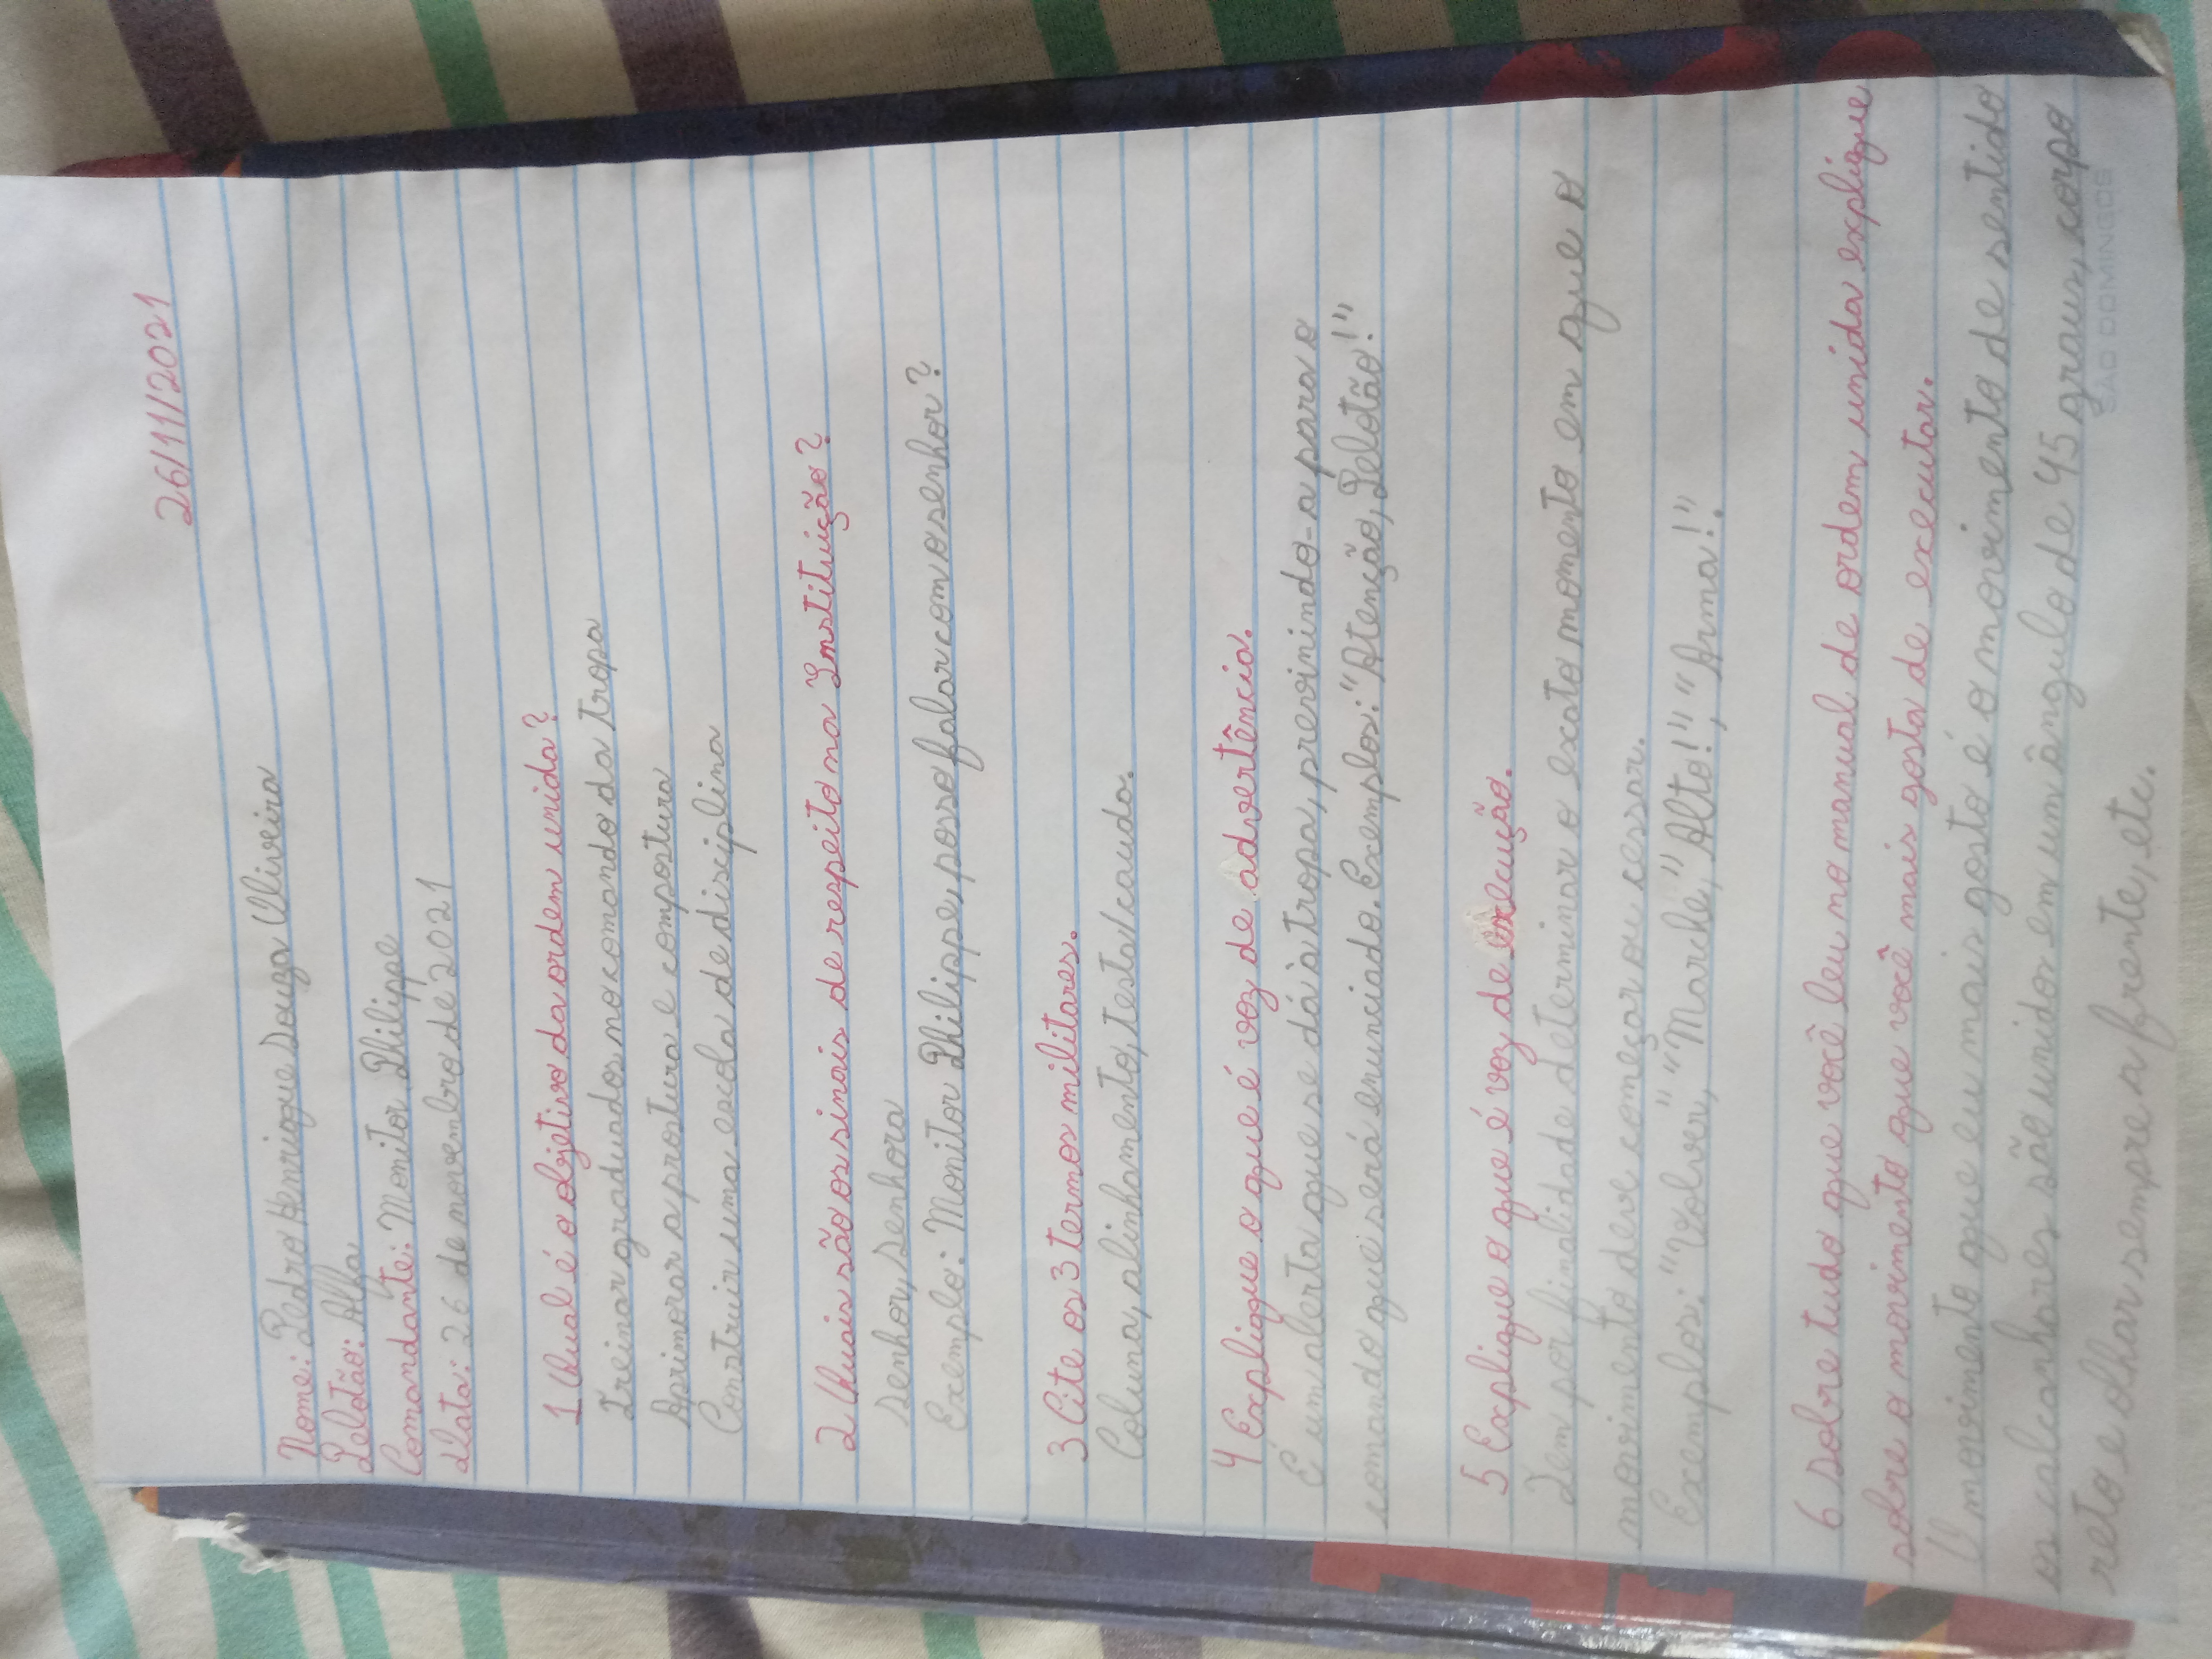 26/11/2021
Nome: Pedro Henrique Souza Oliveira
Pelotão: Alfa
Comandante: Monitor Philippe
Data: 26 de novembro de 2021
1 Qual é o objetivo da ordem unida?
Treinar graduados no comando da tropa
Aprimorar a postura e compostura
Construir uma escola de disciplina
2 Quais são os sinais de respeito na Instituição?
Senhor, senhora
Exemplo: Monitor Philippe, posso falar com o senhor?
3 Cite os 3 termos militares.
Coluna, alinhamento, testa/cauda.
4 Explique o que é voz de advertência.
É um alerta que se dá à tropa, prevenindo-a para o
comando que será enunciado. Exemplos: "Atenção, Pelotão!"
5 Explique o que é voz de execução.
Tem por finalidade determinar o exato momento em que o
movimento deve começar ou cessar.
Exemplos: "Volver", "Marche", "Alto!", "Arma!".
6 Sobre tudo que você leu no manual de ordem unida explique
sobre o movimento que você mais gosta de executar.
O movimento que eu mais gosto é o movimento de sentido
os calcanhares são unidos em um ângulo de 45 graus, corpo
reto e olhar sempre a frente, etc.
SÃO DOMINGOS